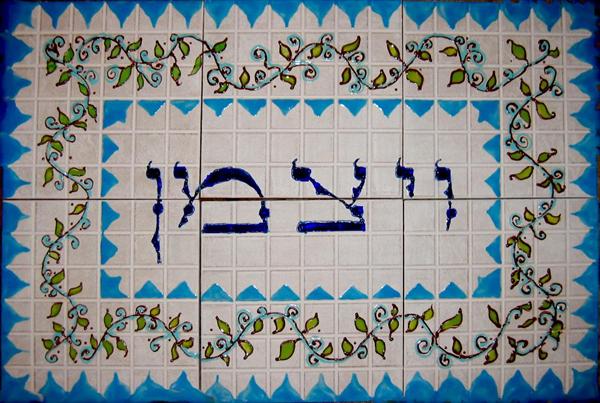 ויצמן